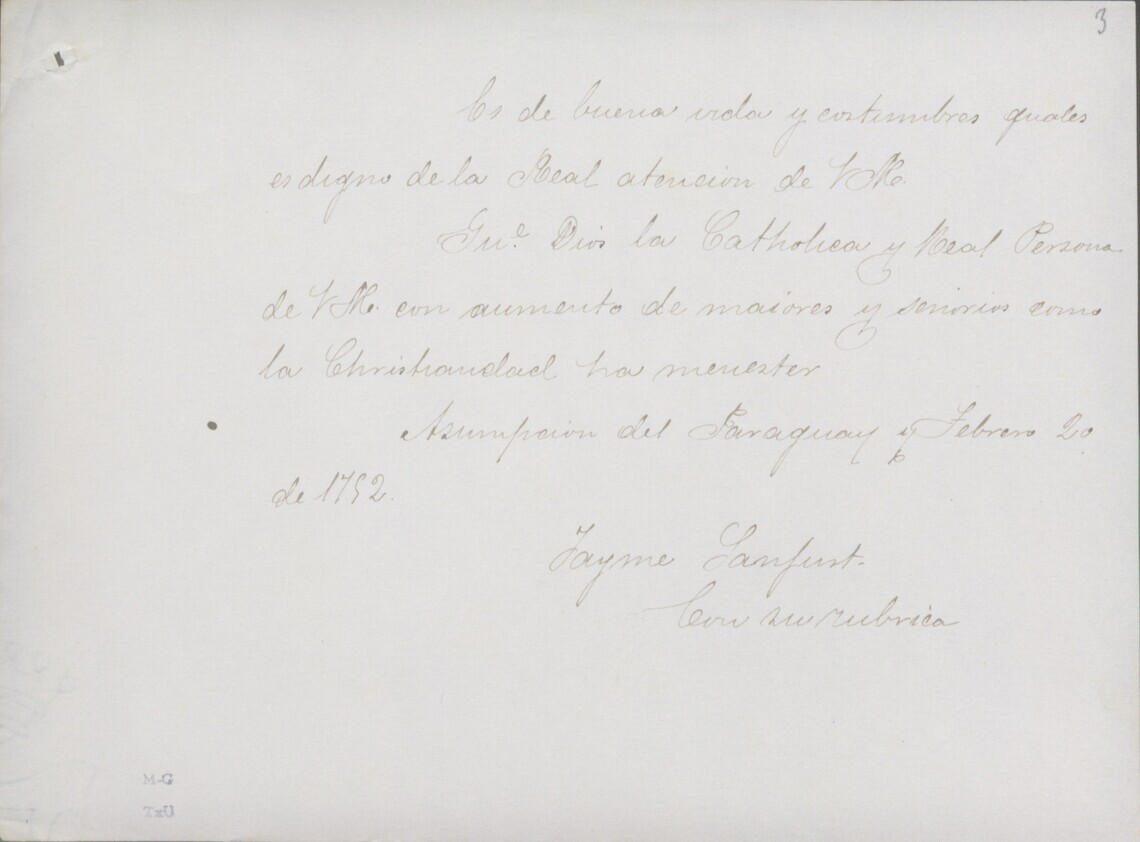 3
Es de buena vida y costumbres quales
es digno de la Real atencion de VM.
Gu.e Dios la Catholica y Real Persona
de VM. con aumento de maiores y señorios como
la Christiandad ha menester
Asumpcion del Paraguay y Febrero 20
de 1752.
Jayme Sanjust.
Con su rubrica
M-G
TxU